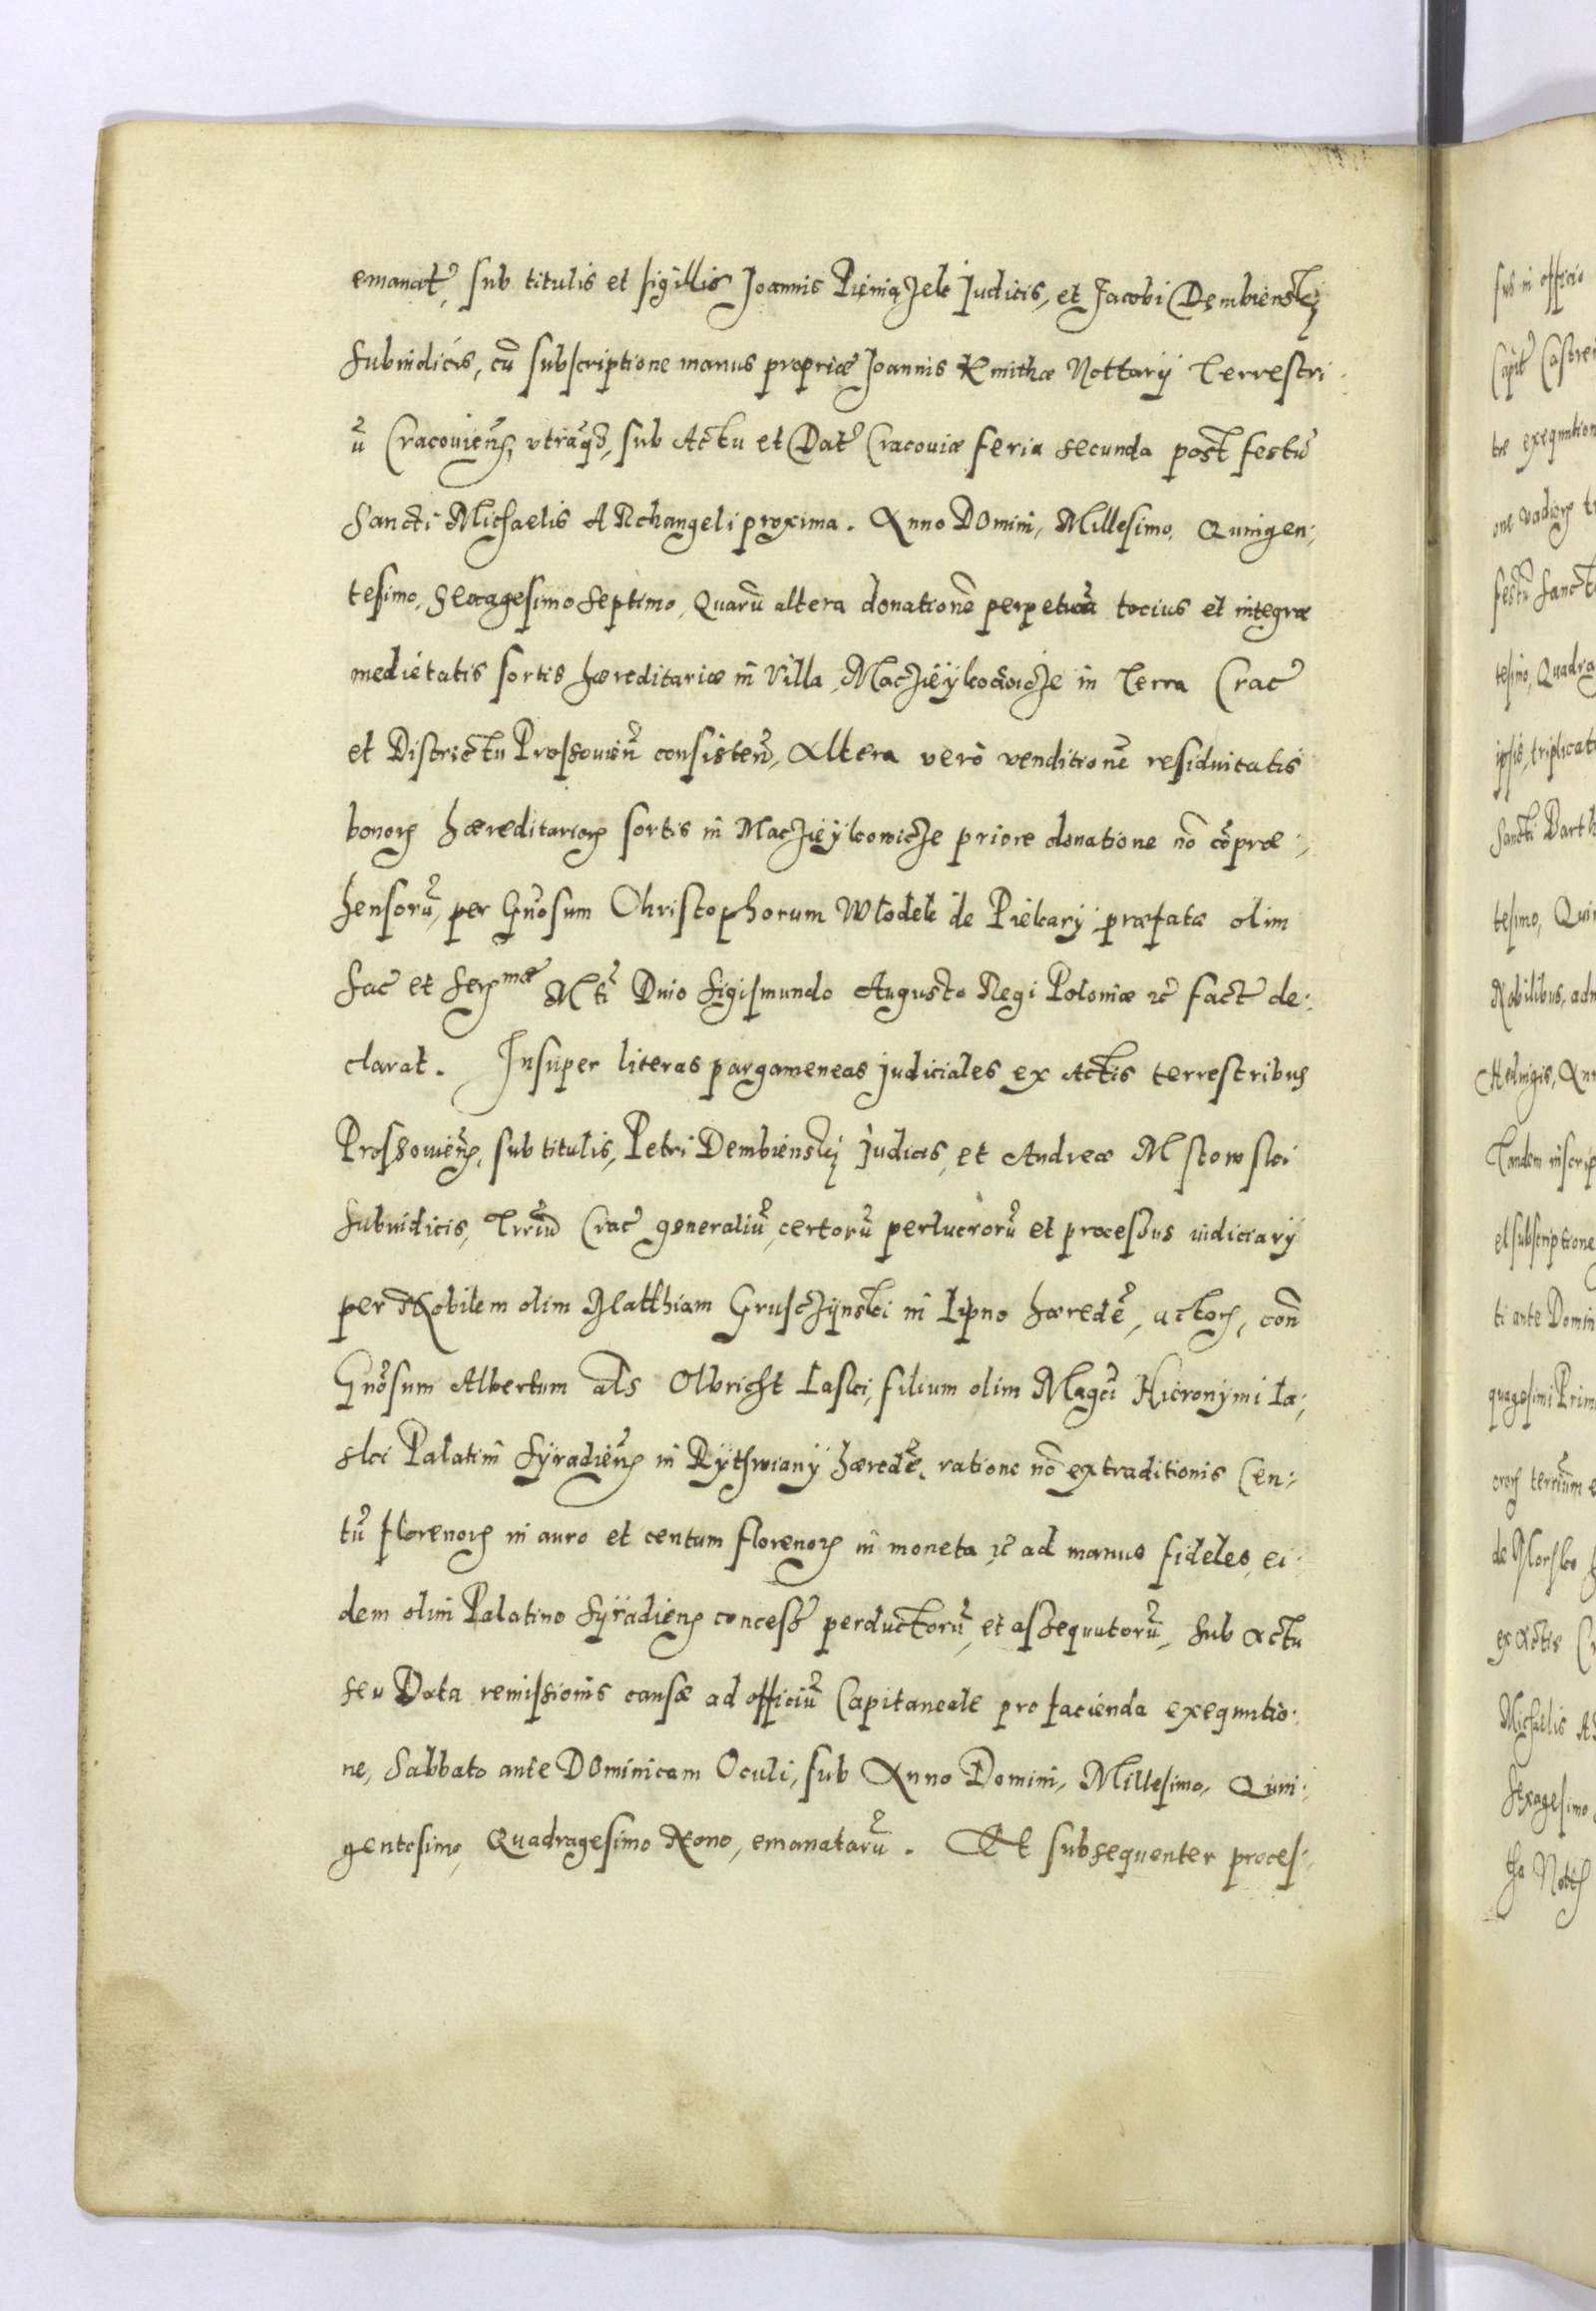 emanat̃, sub titulis et sigillis Joannis Pieniąʒek Judicis, et Jacobi Dembienskj
Subiudicis, cũ subscriptione manus propriæ Joannis Kmithæ Nottarij Terrestri
ũ Cracouien̄, vtraq̃, sub Actu et Dat̃ Cracouiæ feria secunda post festũ
Sancti Michaelis ARchangeli proxima. Anno DOmini, Millesimo, Quingen:
tesimo, Sexagesimo Septimo, Quarũ altera donationẽ perpetuã tocius et integræ
medietatis sortis hæreditariæ in Villa Macʒieÿkowicʒe in Terra Crac̃
et Districtu Prossouien̄ consisten̄, Altera verò venditionẽ residuitatis
bonorꝝ hæreditariorꝝ sortis in Macʒieÿkowicʒe priore donatione nõ cõpræ:
hensorũ, per Gñosum Christophorum Wlodek de Piekarÿ præfatæ olim
Sac̃ et Serꝫmæ Mti Dnio Sigismundo Augusto Regi Poloniæ ꝛc̃ fact̃ de:
clarat. Insuper literas pargameneas judiciales ex Actis terrestribus
Prossouien̄, sub titulis, Petri Dembienskj Judicis, et Andreæ Mstowski
Subiudicis, Trriũ Crac̃ generaliũ, certorũ perlucrorũ et processus iudiciarÿ
per Nobilem olim Matthiam Gruscʒÿnski in Lipno hæredẽ, actorꝫ, con̄
Gñosum Albertum als Olbricht Laski, filium olim Magci Hieronÿmi La:
ski Palatini Sÿradien̄ in Rÿthwianÿ hæredẽ, ratione nõ extraditionis Cen:
tũ florenorꝝ in auro et centum florenorꝝ in moneta ꝛc̃ ad manus fideles, ei:
dem olim Palatino Sÿradien̄ concess̃ perductorũ, et assequutorũ, Sub Actu
seu Data remissionis causæ ad officiũ Capitaneale pro facienda exequutio:
ne, Sabbato ante DOminicam Oculi, sub Anno Domini, Millesimo, Quin:
gentesimo, Quadragesimo Nono, emanatarũ. Et subsequenter proces:
sus in officio
tesimo, Quadra
ipsis, triplicat
Sancti Barth
tesimo, Quin
Nobilibus, adm
Tandem inscrip
et subscriptione
ti ante Domin
quagesimi Prim
ex Actis Cr
Sexagesimo